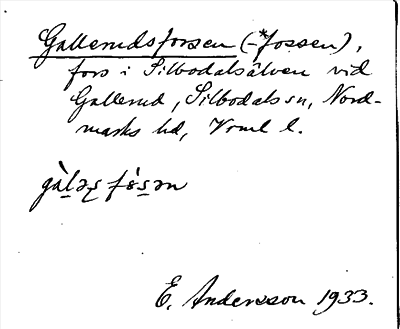 Gallerudsforsen (-*fossen),
fors i Silbodalsälven vid
Gallerud, Silbodals sn, Nord-
marks hd, Vrml l.
E. Andersson 1933.